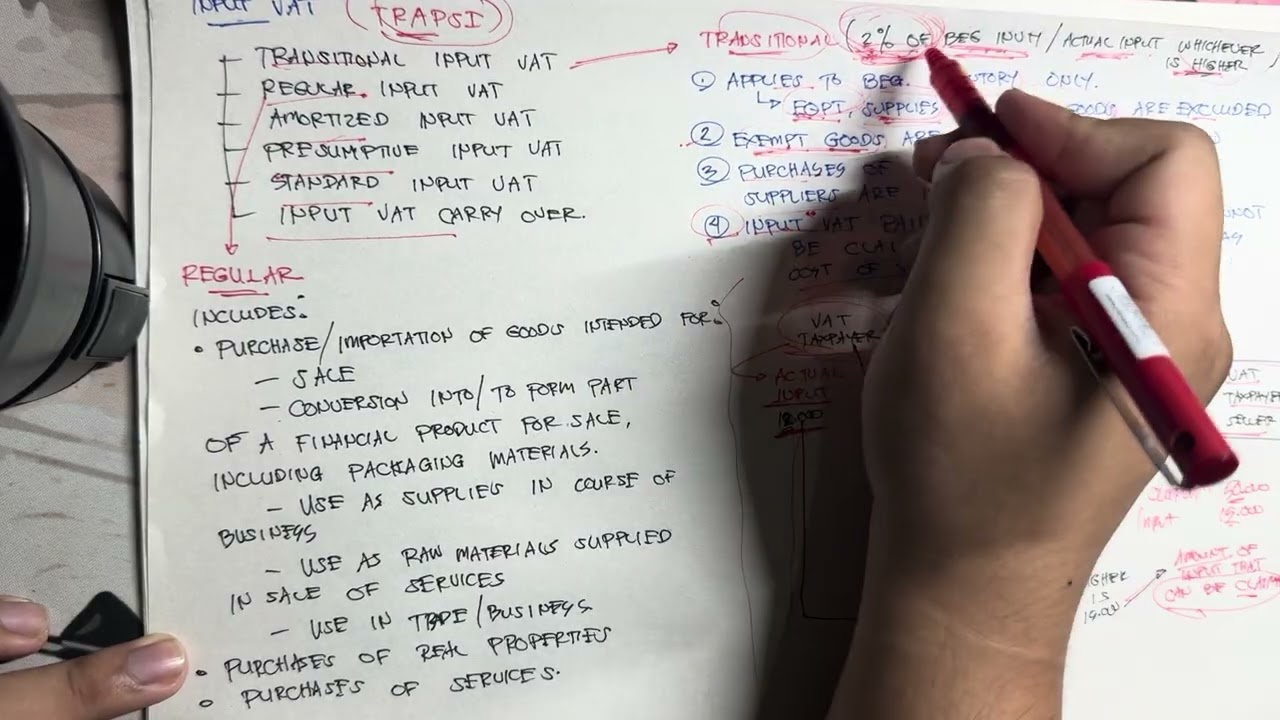 INPUT VAT (TRAPSI)
TRANSITIONAL INPUT VAT
REGULAR INPUT VAT
AMORTIZED INPUT VAT
PRESUMPTIVE INPUT VAT
STANDARD INPUT VAT
INPUT VAT CARRY OVER.
REGULAR
INCLUDES:
• PURCHASE/IMPORTATION OF GOODS INTENDED FOR:
— SALE
— CONVERSION INTO/TO FORM PART
OF A FINANCIAL PRODUCT FOR SALE,
INCLUDING PACKAGING MATERIALS.
— USE AS SUPPLIES IN COURSE OF
BUSINESS
— USE AS RAW MATERIALS SUPPLIED
IN SALE OF SERVICES
— USE IN TRADE/BUSINESS
• PURCHASES OF REAL PROPERTIES
• PURCHASES OF SERVICES.
TRANSITIONAL (2% OF BEG INVY/ACTUAL INPUT WHICHEVER
IS HIGHER)
① APPLIES TO BEG. ONLY.
EQPT, SUPPLIES GOODS ARE EXCLUDED
② EXEMPT GOODS
③ PURCHASES OF
SUPPLIERS ARE
④ INPUT VAT
BE
COST OF
VAT
TAXPAYER
ACTUAL
INPUT
VAT
TAXPAYER
SELLER
Input 15.000
AMOUNT OF
INPUT THAT
CAN BE
IS